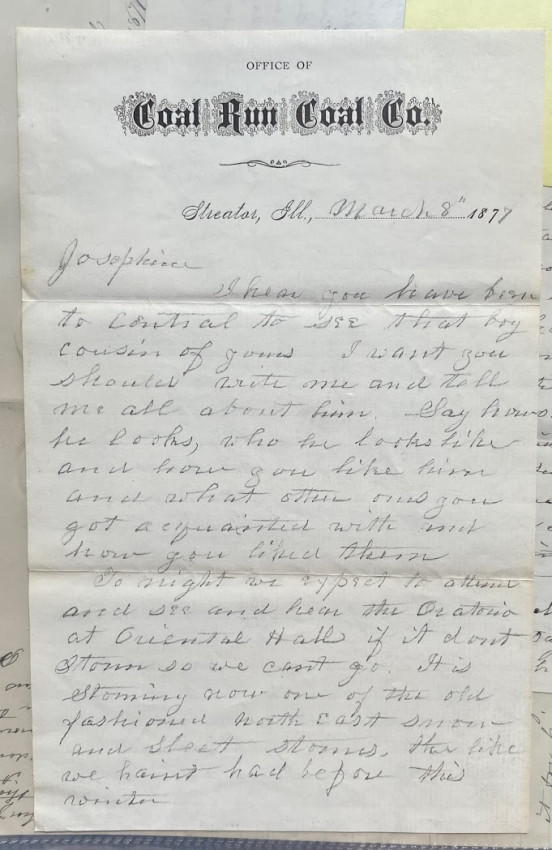 OFFICE OF
Coal Run Coal Co.
Streator, Ill., March 8" 1877
Josephine
I hear you have been
to central to see that boy
cousin of yours I want you
should write me and tell
me all about him. Say hows
he looks, who he looks like
and how you like him
and what other ones you
got acquainted with and
how you liked them
To night we expect to attend
and see and hear the Oratorio
at Oriental Hall if it dont
storm so we cant go. It is
storming now one of the old
fashioned north east snow
and sleet storms, the like
we haint had before this
winter